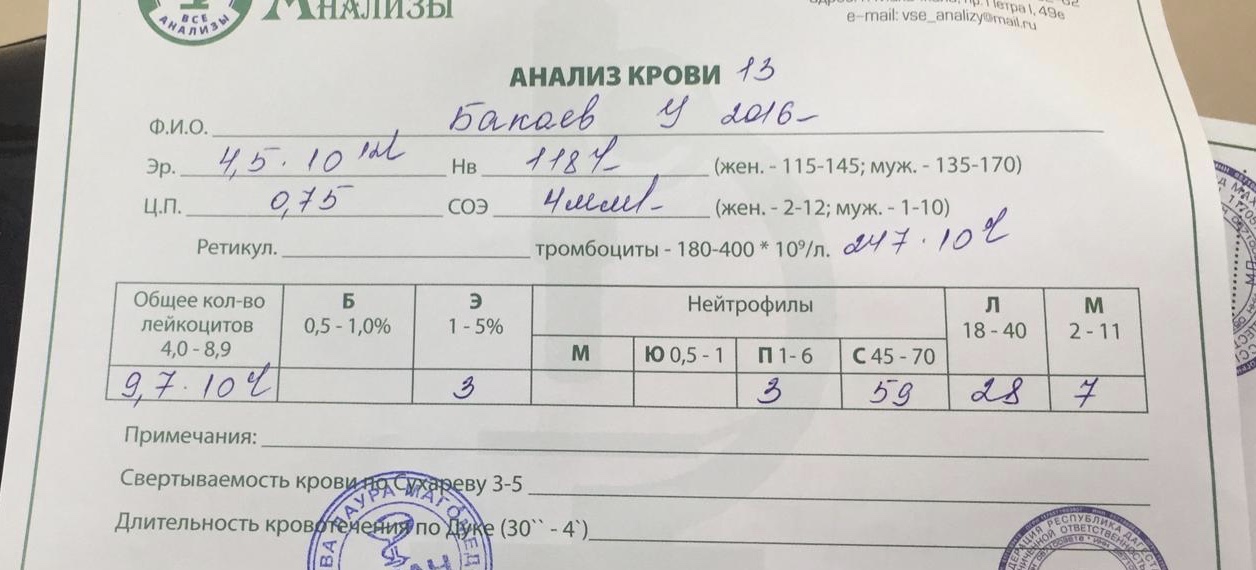 ВСЕ
АНАЛИЗЫ
АНАЛИЗЫ
Петра I, 49е
e-mail: vse_analizy@mail.ru
АНАЛИЗ КРОВИ 13
Ф.И.О. Бакаев У 2016-
Эр. 4,5·10 12/л Нв 118 г/л (жен. - 115-145; муж. - 135-170)
Ц.П. 0,75 СОЭ 4 мм/- (жен. - 2-12; муж. - 1-10)
Ретикул. тромбоциты - 180-400 * 10⁹/л. 247·10⁹/л
Общее кол-во лейкоцитов 4,0 - 8,9 Б 0,5 - 1,0% Э 1 - 5% Нейтрофилы Л 18 - 40 М 2 - 11
М Ю 0,5 - 1 П 1- 6 С 45 - 70
9,7·10⁹/л 3 3 59 28 7
Примечания:
Свертываемость крови по Сухареву 3-5
Длительность кровотечения по Дуке (30`` - 4`)
ЛАУРА МАГОМЕД
РЕСПУБЛИКА ДАГЕСТАН
ОТВЕТСТВЕННОСТЬЮ